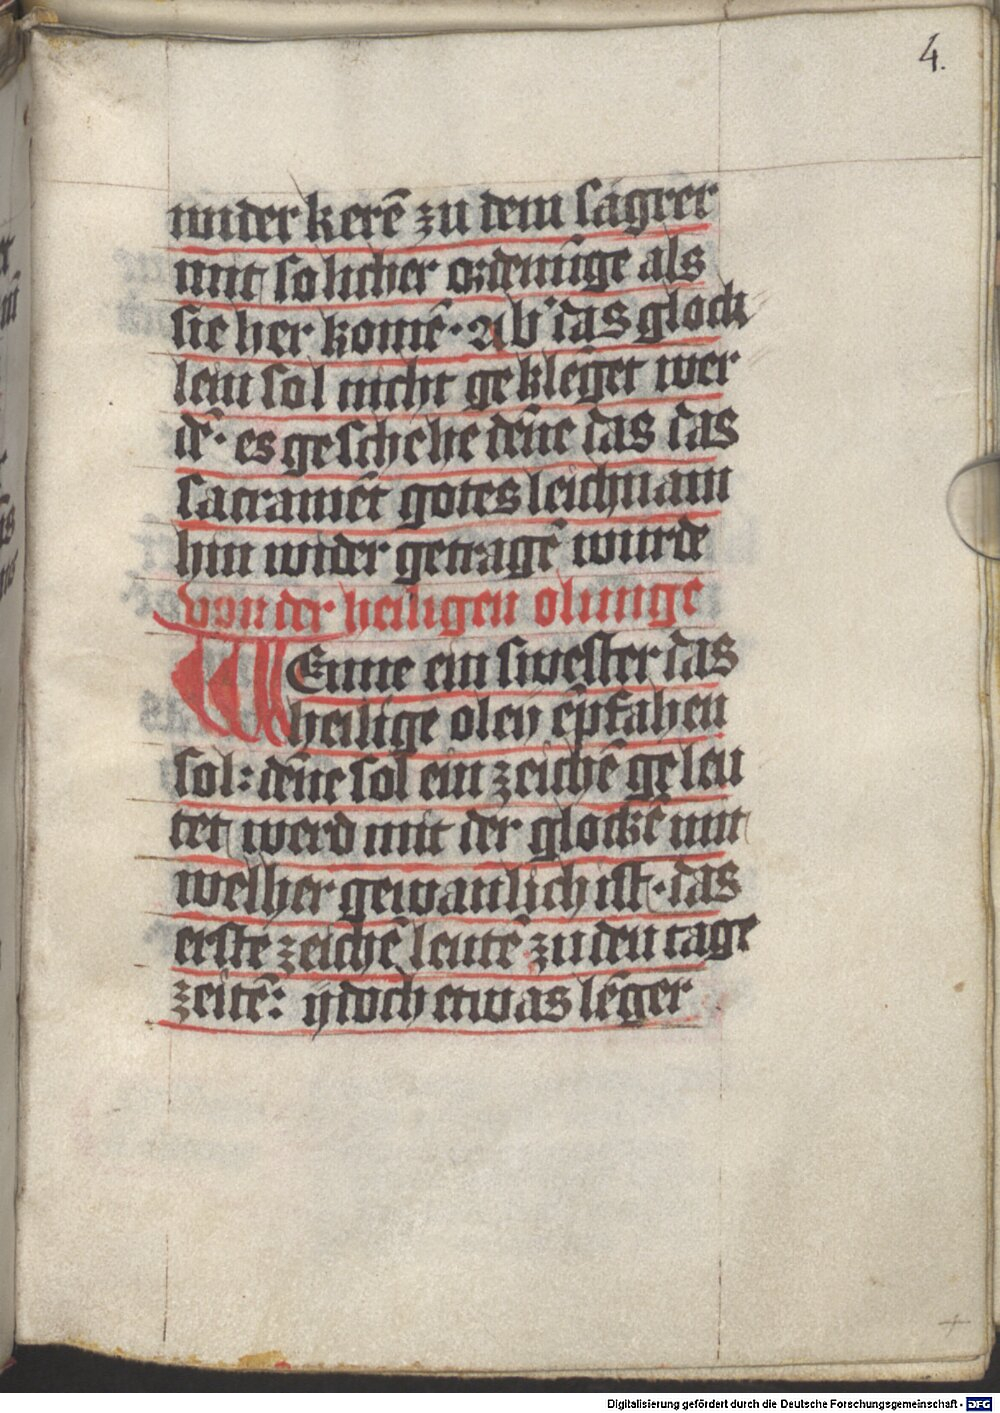 4.
wider kerē zu dem sagrer
mit solicher ordenūge als
sie her komē · Ab' das glock
lein sol nicht geklēget wer
dē · es geschehe dēne das das
sacramēt gotes leichnam
hin wider getragē wurde
von der heiligen olunge
WEnne ein swester das
heilige oley ēpfahen
sol : dēne sol ein zeichē geleu
tet werd mit der glockē mit
welher gewanlich ist · das
erste zeichē leutē zu den tage
zeitē : ydoch etwas lēger
Digitalisierung gefördert durch die Deutsche Forschungsgemeinschaft - DFG